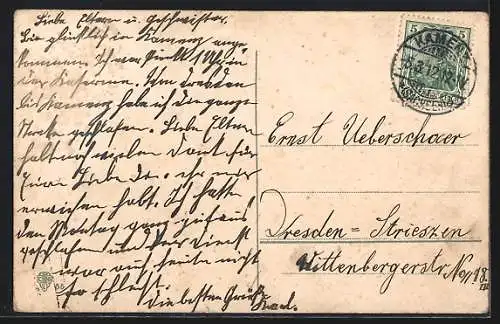 Liebe Eltern u. Geschwister.
Bin glücklich in Kamenz ange-
kommen. Ich war Punkt 1 Uhr in
der Kaserne. Von Dresden
bis Kamenz habe ich die ganze
Strecke geschlafen. Liebe Eltern
habt noch vielen Dank für
Eure Liebe die ihr mir
erwiesen habt. Ich hatte
den Montag ganz gut aus
geschlafen und der Dienst
war auch heute nicht
so schlecht.
Die besten Grüße
5 5
KAMENZ
12
Ernst Ueberschaer
Dresden = Striesen
Wittenbergerstr No 18.
III